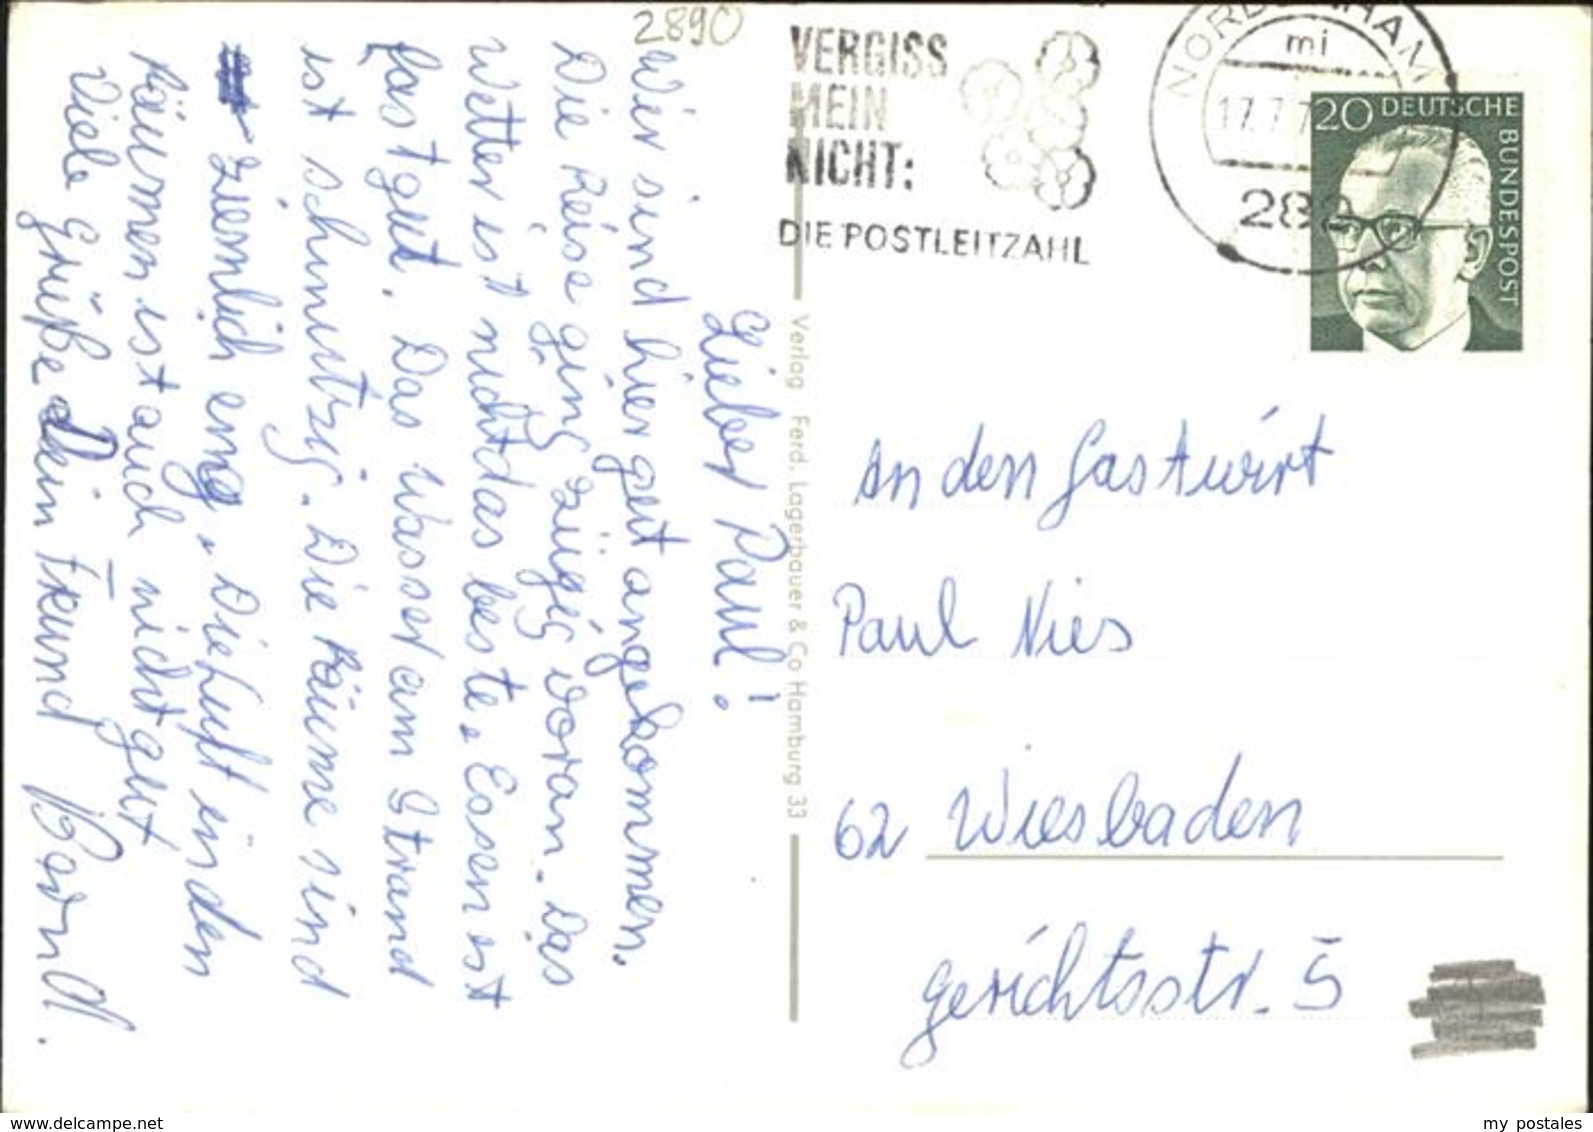 2890
VERGISS
MEIN
NICHT:
DIE POSTLEITZAHL
NORDENHAM
mi
17.7.7
282
20 DEUTSCHE
BUNDESPOST
Lieber Paul!
Wir sind hier gut angekommen.
Die Reise ging zügig voran. Das
Wetter ist nicht das beste. Essen ist
fast gut. Das Wasser am Strand
ist schmutzig. Die Räume sind
ziemlich eng. Die Luft in den
Räumen ist auch nicht gut
Viele Grüße Dein Freund Bernd.
Verlag Ferd. Lagerbauer & Co Hamburg 33
An den Gastwirt
Paul Nies
62 Wiesbaden
Gerichtsstr. 5
www.delcampe.net
my postales